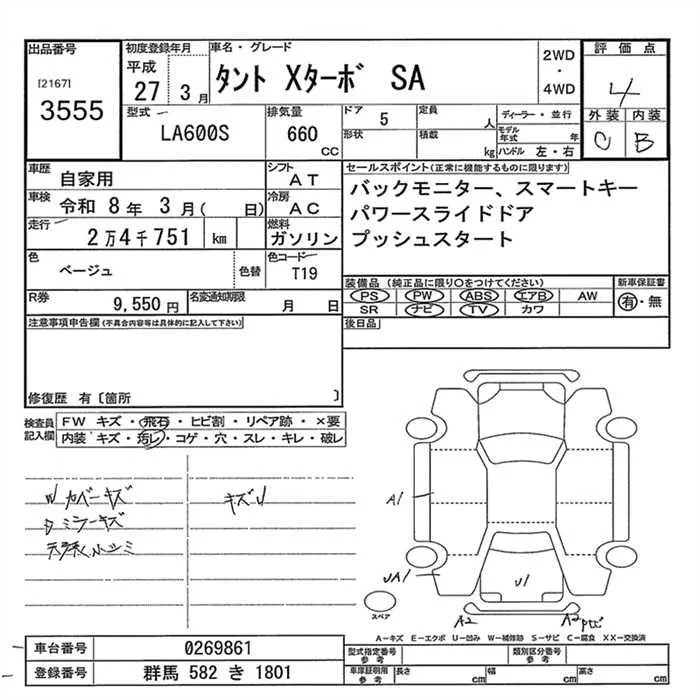 出品番号
[2167]
3555
初度登録年月
平成
27 3月
車名・グレード
タント Xターボ SA
2WD
・
4WD
評価点
4
外装 内装
C B
型式
LA600S
排気量
660
CC
ドア 5
形状
定員
人
積載
kg
ディーラー・並行
モデル年式 年
ハンドル 左・右
車歴
自家用
シフト
AT
車検
令和 8年 3月( 日)
冷房
AC
走行
2万4千751 km
燃料
ガソリン
色
ベージュ
色替
色コード
T19
R券
9,550円
名変通知期限
月 日
セールスポイント(正常に機能するものに限ります)
バックモニター、スマートキー
パワースライドドア
プッシュスタート
装備品(純正品に限り〇をつけてください)
PS PW ABS エアB AW
SR ナビ TV カワ
新車保証書
有・無
後日品
注意事項申告欄(不具合内容等は具体的に記入して下さい)
修復歴 有〔箇所 〕
検査員
記入欄
FW キズ・飛石・ヒビ割・リペア跡・×要
内装 キズ・汚レ・コゲ・穴・スレ・キレ・破レ
カバーキズ
ミラーキズ
キズU
A1
UA1
U1
A2
A2
スペア
A－キズ E－エクボ U－凹み W－補修跡 S－サビ C－腐食 XX－交換済
車台番号
0269861
登録番号
群馬 582 き 1801
型式指定番号
参考
類別区分番号
参考
車庫証明用
参考
長さ cm
幅 cm
高さ cm